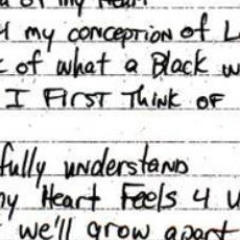 of my Heart
4 my conception of L
of what a Black w
I First Think of
fully understand
my Heart Feels 4 U
we'll grow apart